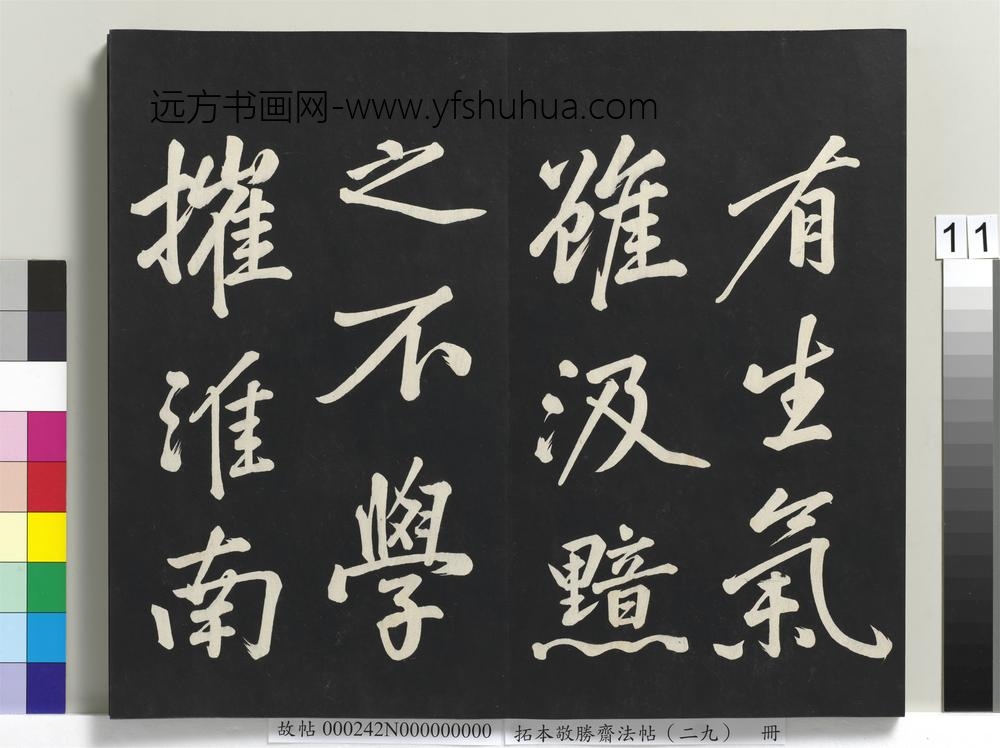 远方书画网-www.yfshuhua.com
有生氣
雖汲黯
之不學
摧淮南
11
故帖 000242N000000000
拓本敬勝齋法帖（二九） 冊